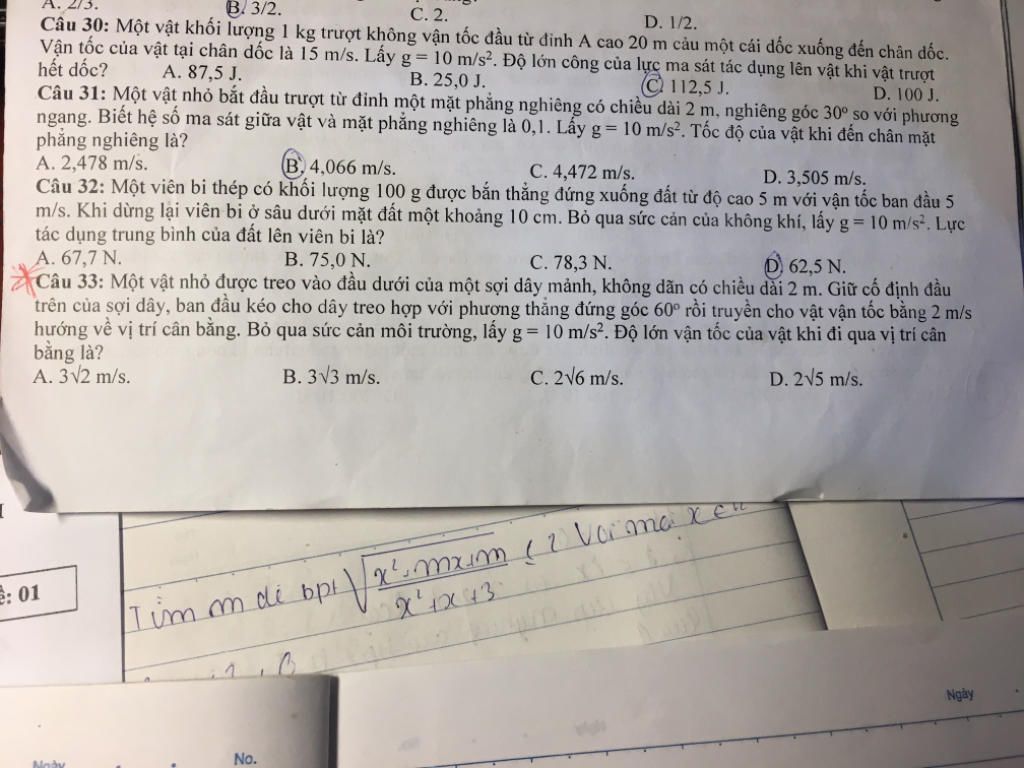 A. 2/3. B. 3/2. C. 2. D. 1/2.
Câu 30: Một vật khối lượng 1 kg trượt không vận tốc đầu từ đỉnh A cao 20 m cảu một cái dốc xuống đến chân dốc.
Vận tốc của vật tại chân dốc là 15 m/s. Lấy g = 10 m/s². Độ lớn công của lực ma sát tác dụng lên vật khi vật trượt
hết dốc? A. 87,5 J. B. 25,0 J. C. 112,5 J. D. 100 J.
Câu 31: Một vật nhỏ bắt đầu trượt từ đỉnh một mặt phẳng nghiêng có chiều dài 2 m, nghiêng góc 30⁰ so với phương
ngang. Biết hệ số ma sát giữa vật và mặt phẳng nghiêng là 0,1. Lấy g = 10 m/s². Tốc độ của vật khi đến chân mặt
phẳng nghiêng là?
A. 2,478 m/s. B. 4,066 m/s. C. 4,472 m/s. D. 3,505 m/s.
Câu 32: Một viên bi thép có khối lượng 100 g được bắn thẳng đứng xuống đất từ độ cao 5 m với vận tốc ban đầu 5
m/s. Khi dừng lại viên bi ở sâu dưới mặt đất một khoảng 10 cm. Bỏ qua sức cản của không khí, lấy g = 10 m/s². Lực
tác dụng trung bình của đất lên viên bi là?
A. 67,7 N. B. 75,0 N. C. 78,3 N. D. 62,5 N.
Câu 33: Một vật nhỏ được treo vào đầu dưới của một sợi dây mảnh, không dãn có chiều dài 2 m. Giữ cố định đầu
trên của sợi dây, ban đầu kéo cho dây treo hợp với phương thẳng đứng góc 60⁰ rồi truyền cho vật vận tốc bằng 2 m/s
hướng về vị trí cân bằng. Bỏ qua sức cản môi trường, lấy g = 10 m/s². Độ lớn vận tốc của vật khi đi qua vị trí cân
bằng là?
A. 3√2 m/s. B. 3√3 m/s. C. 2√6 m/s. D. 2√5 m/s.
: 01
Tìm m để bpt
Với mọi x
x²+x+3
Ngày
Ngày No.